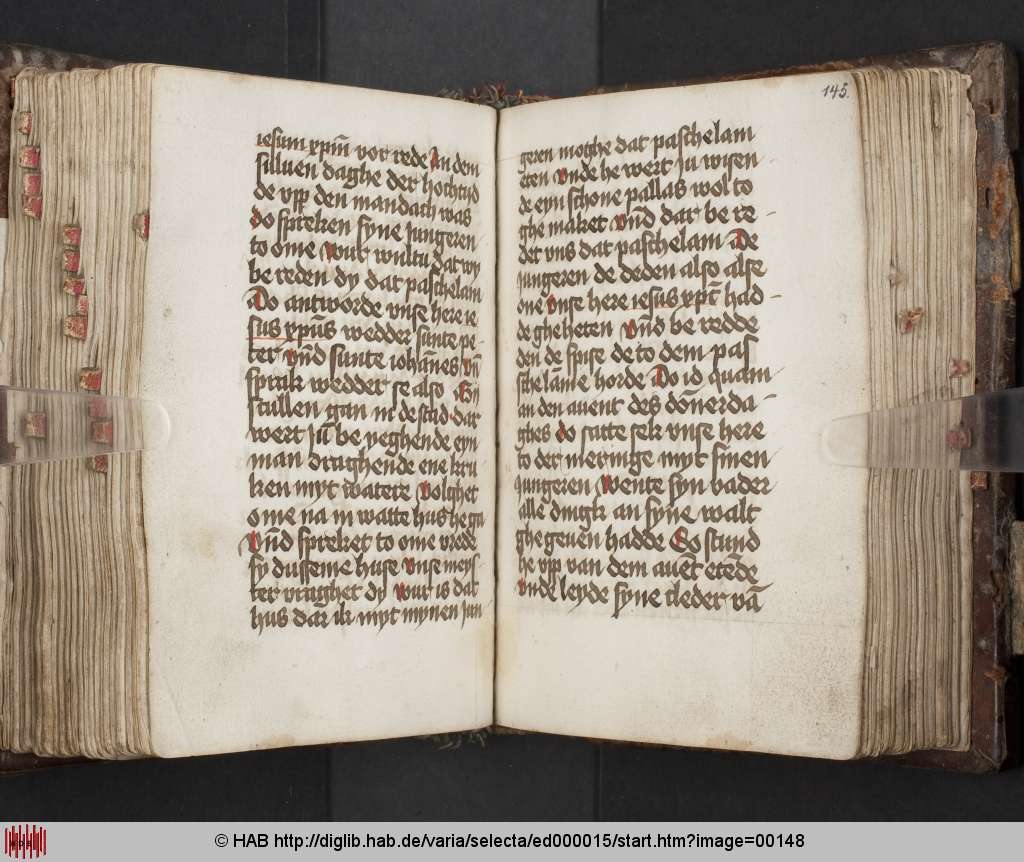 iesum xp̄m vor rede An dem
silluen daghe der hochtyd
de vpp den mandach was
do spreken syne jungeren
to ome wur wultu dat wy
be reden dy dat paschelam
Do antworde vnse here ie
sus xp̄us wedder sunte pe
ter vn̄d sunte iohan̄es vn̄
sprak wedder se also Gy
scullen gan in de stad dar
wert ju be yeghende eyn
man draghende ene kru
ken myt watere volghet
ome na in watte hus he ga
vn̄d spreket to ome vrede
sy dusseme huse vnse meys
ter vraghet dy wur is dat
hus dar ik myt mynen jun
145.
geren moghe dat paschelam
eten vnde he wert ju wisen
de eyn schone pallas wol to
ghe maket vn̄d dar be re
det vns dat paschelam De
jungeren de deden also alse
one vnse here iesus xp̄c had
de gheheten vn̄d be redde
den de spise de to dem pas
schelam̄e horde Do id quam
an den auent des don̄erda
ghes do satte sek vnse here
to der meringe myt sinen
jungeren wente syn vader
alle dingk an syne walt
ghe geuen hadde So stund
he vpp van dem auēt etēde
vnde leyde syne cleder vā
© HAB http://diglib.hab.de/varia/selecta/ed000015/start.htm?image=00148